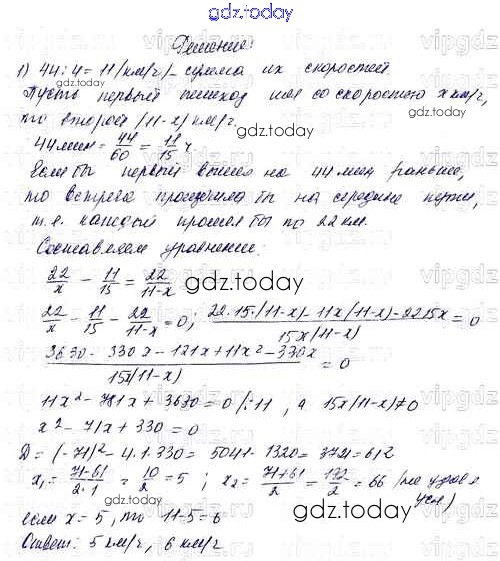 gdz.today
Решение:
1) 44:4=11 (км/ч) – сумма их скоростей.
Пусть первый пешеход шел со скоростью x км/ч,
то второй (11-x) км/ч.
gdz.today
44 мин = 44/60 = 11/15 ч
Если бы первый вышел на 44 мин раньше,
то встреча произошла бы на середине пути,
т.е. каждый прошел бы по 22 км.
Составляем уравнение:
22/x - 11/15 = 22/11-x
gdz.today
22/x - 11/15 - 22/11-x = 0; 22·15·(11-x) - 11x(11-x) - 22·15x / 15x(11-x) = 0
3630 - 330x - 121x + 11x² - 330x / 15x(11-x) = 0
11x² - 781x + 3630 = 0 /:11, а 15x(11-x)≠0
x² - 71x + 330 = 0
gdz.today
D = (-71)² - 4·1·330 = 5041 - 1320 = 3721 = 61²
x₁ = 71-61/2·1 = 10/2 = 5; x₂ = 71+61/2 = 132/2 = 66 (не удовл.
усл)
если x = 5, то 11-5=6
Ответ: 5 км/ч, 6 км/ч
gdz.today